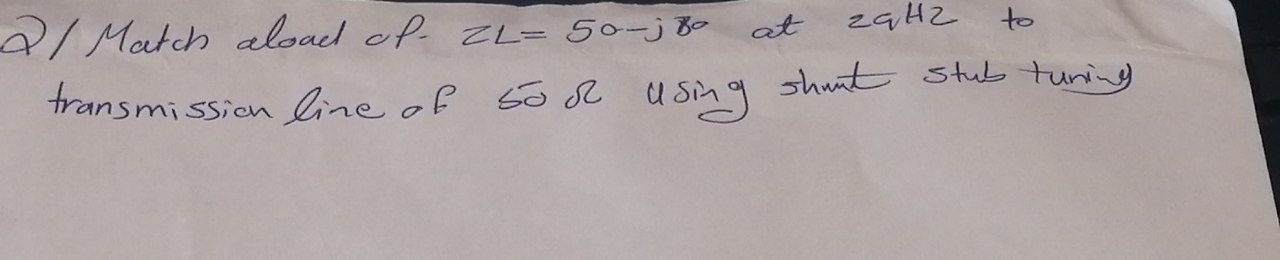 Q/ Match aload of ZL= 50-j80 at 2GHZ to
transmission line of 50 Ω using shunt stub tuning